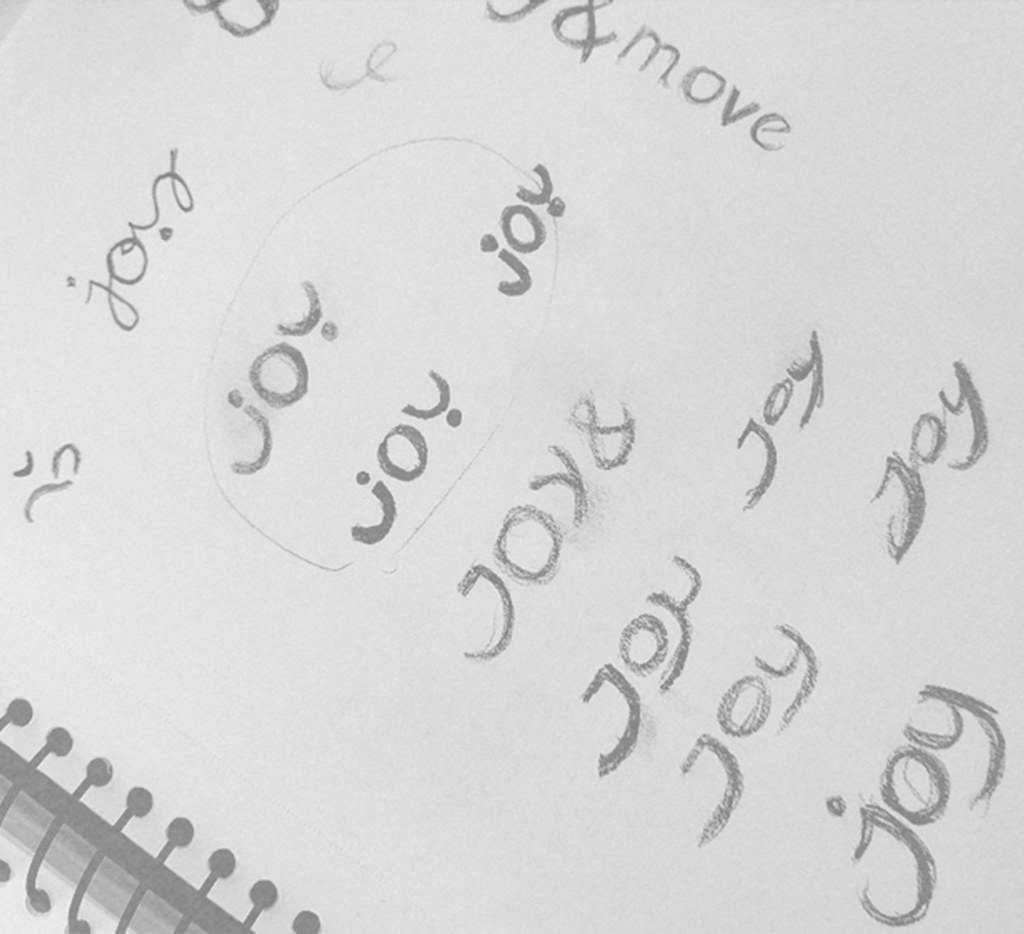 & move
joy
joy
joy
joy
joy &
joy
joy
joy
joy
joy